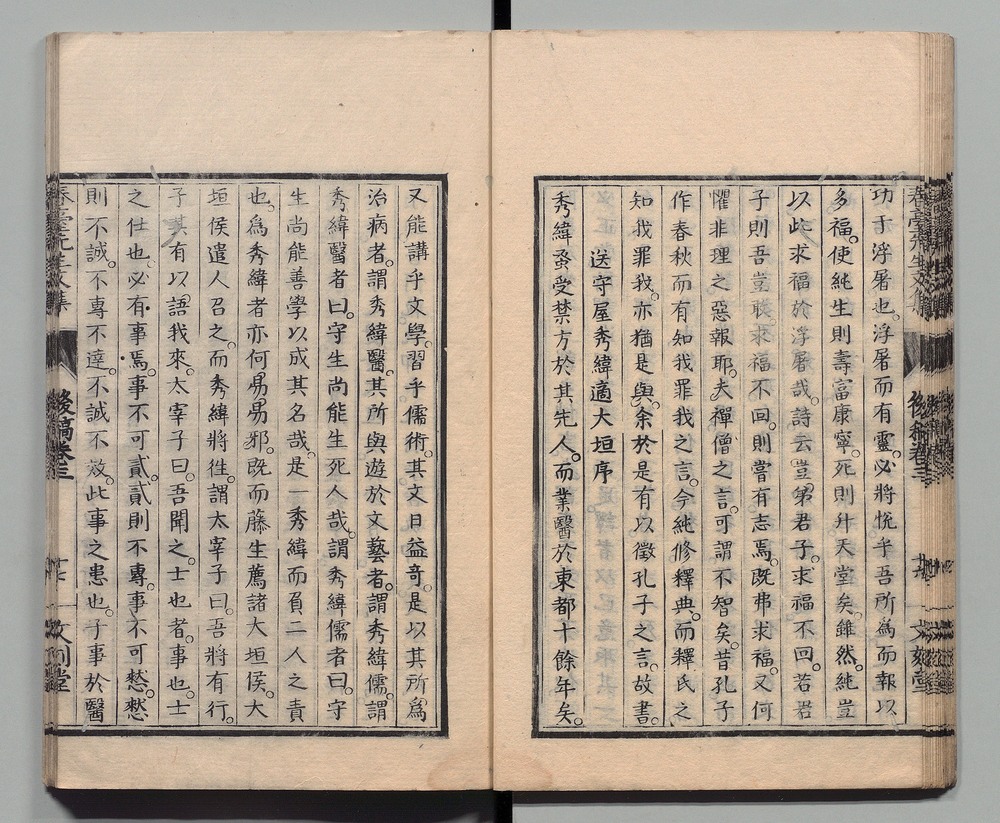 功于浮屠也。浮屠而有靈。必將悅乎吾所爲而報以
多福。使純生則壽富康寧。死則升天堂矣。雖然。純豈
以此求福於浮屠哉。詩云。豈第君子。求福不回。若君
子則吾豈敢。求福不回。則嘗有志焉。既弗求福。又何
懼非理之惡報耶。夫禪僧之言。可謂不智矣。昔孔子
作春秋而有知我罪我之言。今純修釋典。而釋氏之
知我罪我。亦猶是與。余於是有以徵孔子之言。故書。
送守屋秀緯適大垣序
秀緯蚤受禁方於其先人。而業醫於東都十餘年矣。
又能講乎文學。習乎儒術。其文日益奇。是以其所爲
治病者。謂秀緯醫。其所與遊於文藝者。謂秀緯儒。謂
秀緯醫者曰。守生尚能生死人哉。謂秀緯儒者曰。守
生尚能善學以成其名哉。是一秀緯而負二人之責
也。爲秀緯者亦何易易邪。既而藤生薦諸大垣侯。大
垣侯遣人召之。而秀緯將徃。謂太宰子曰。吾將有行。
子其有以語我來。太宰子曰。吾聞之。士也者。事也。士
之仕也。必有事焉。事不可貳。貳則不專。事不可愁。愁
則不誠。不專不達。不誠不效。此事之患也。子事於醫
春臺先生文集
後稿卷三